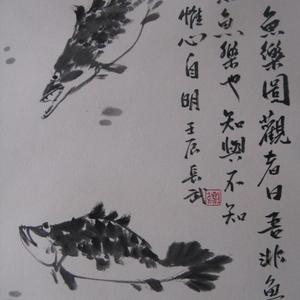 魚樂圖觀者曰吾非魚
魚樂也知與不知
惟心自明壬辰長武